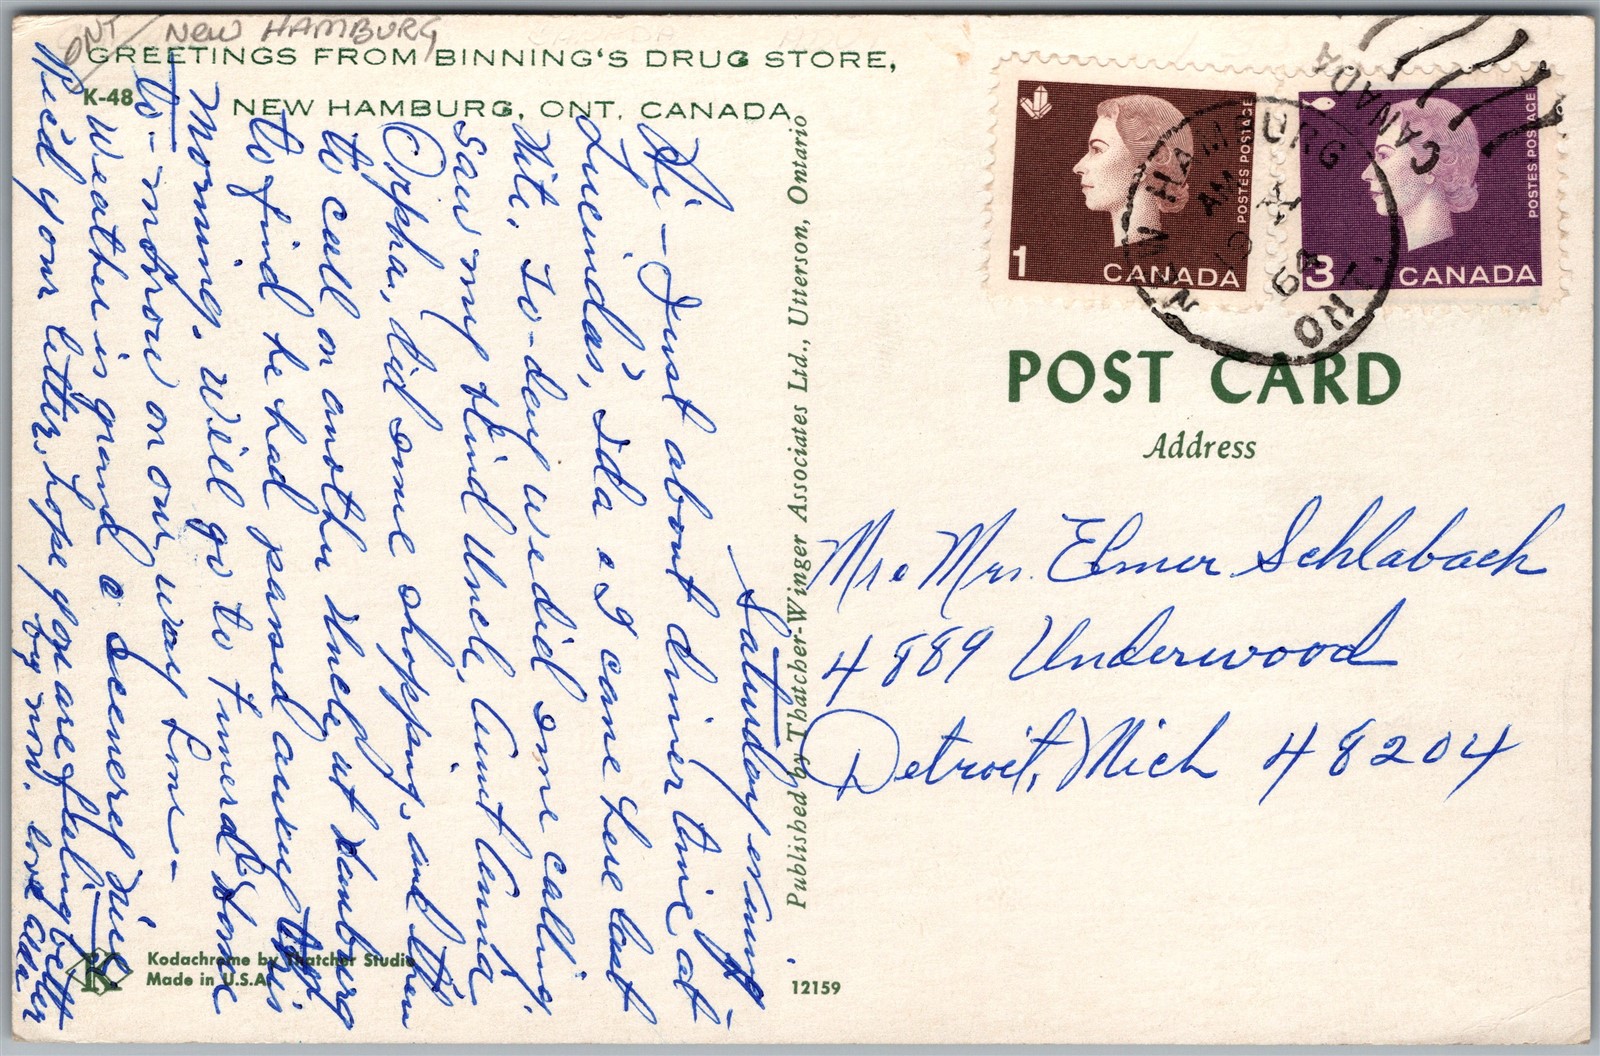 ONT / NEW HAMBURG
GREETINGS FROM BINNING'S DRUG STORE,
K-48
NEW HAMBURG, ONT. CANADA
Saturday evening.
Hi - Just about dinner time at
Lucinda's, Ida & I came here last
nite. To-day we did some calling,
saw my blind Uncle, Aunt
Orpha, did some shopping, and then
to call on another Uncle, at Hamburg
to find he had passed away this
Morning. Will go to funeral Home
to-morrow on our way home -
Weather is grand & scenery nice
Rec'd your letter, hope you are feeling better
by now. Love
Kodachrome by Thatcher Studio
Made in U.S.A.
K
12159
Published by Thatcher-Winger Associates Ltd., Utterson, Ontario
1
CANADA
POSTES POSTAGE
3
CANADA
POSTES POSTAGE
NEW HAMBURG
AM
64
ONT
CANADA
POST CARD
Address
Mr & Mrs. Elmer Schlabach
4889 Underwood
Detroit, Mich 48204